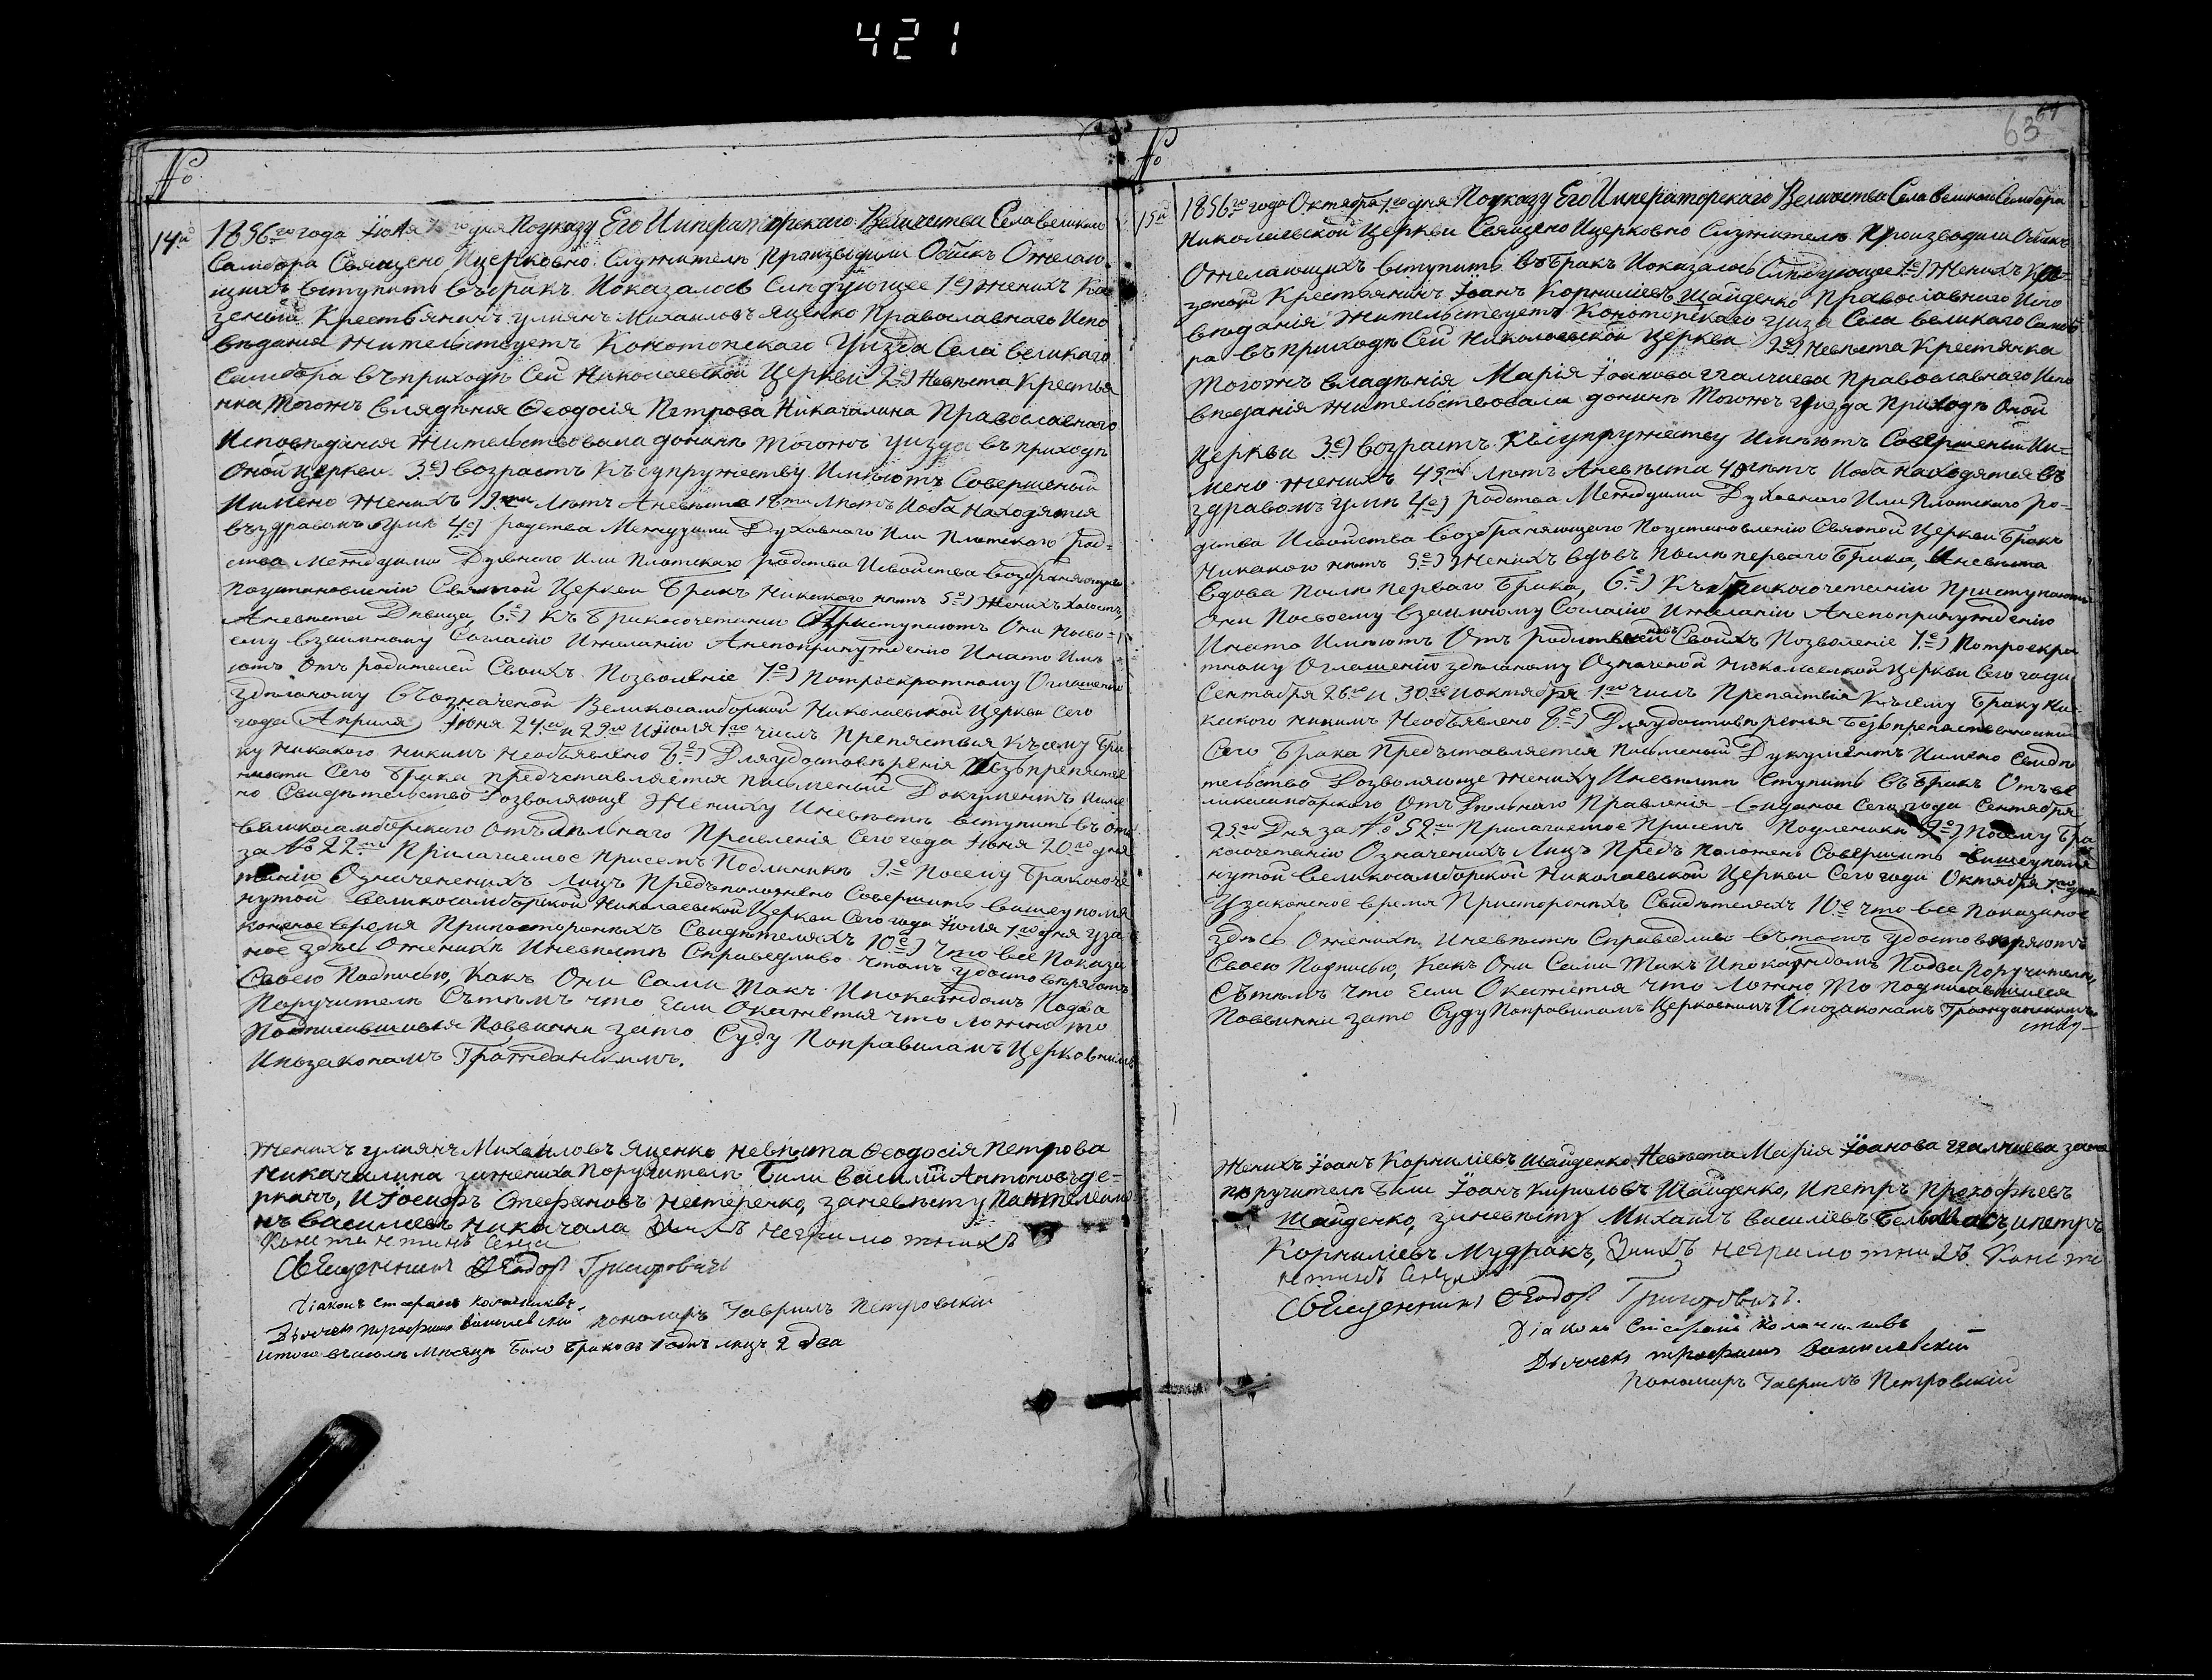 421
63 64
№
14й
1856го года Іюля 1го дня Поуказу Его Императорскаго Величества Села великаго
Самбора Священо Ицерковно Служители Производили Обыскъ Ожелаю
щихъ вступить въбракъ Иоказалось Следующее 1е) женихъ Ка
зеный Крестьянинъ улиянъ Михаиловъ яценко Православнаго Испо
ведания жительствуетъ Конотопскаго Уизда Села великаго
Самбора въприходѣ Сей Николаевской Церкви 2е) Невѣста Крестья
нка тогожъ влядѣния Ѳеодосія Петрова Никачалина Православного
Исповѣдания жительствовала донинѣ тогожъ уизда въприходѣ
Оной церкви 3е) возрастъ Къ супружеству Имѣютъ Совершеный
Имѣно женихъ 19ти лѣтъ Аневѣста 18ти лѣтъ Иоба Находятся
въздравомъ умѣ 4е) родства Междуими Духовнаго Или плотскаго род=
ства Междуими Духвного Или Плотскаго родства Исвойства возбраняющаго
Поустановлению Святой Церкви Бракъ Никакого нетъ 5е) женихъ холостъ,
Аневѣста Дѣвица, 6е) Къ Бракосочетанию Приступаютъ Они посво=
ему взаимному Согласію Ижеланію Анепопринуждению Инато Имѣ
ютъ Отъ родителей Своихъ Позволеніе 7е) Потроекратному Оглашению
зделаному въозначеной Великосамборской Николаевской Церкви Сего
года Априля Іюня 24го и 29го Июля 1го числъ Препяствия Къ сему Бра
ку никакого никимъ Необъявлено 8е) Дляудостовѣрения Безъпрепятстве
ности Сего Брака предъставляется писменый Документъ Имѣ
но Свидѣтельство Дозволяюще Жениху Иневѣсте вступить въ отъ
великосамборскаго отъдѣльнаго Правления Сего года Іюня 20го дня
за № 22м Прилагаемое присемъ Подлиникѣ 9е Посему Бракосоче
танию Означенихъ лицъ Предъположено Совершить вишеупомя
нутой великосамборской Николаевской Церкви Сего года Іюля 1го дня уза
коненое время Припосторонихъ Свидѣтеляхъ 10е) Что всѣ Показа
ное здѣсь Оженихѣ Иневѣстѣ Справедливо чтомъ удостовѣряютъ
Своею Подписью, Какъ Они Сами такъ Ипокаждомъ Подва
Поручители Сътѣмъ что Если Окажется что ложно то
Подписавшиеся Повинни зато Суду Поправиламъ Церковнимъ
Ипозаконамъ Гражданскимъ.
Женихъ улиянъ Михаиловъ яценко невѣста Ѳеодосія Петрова
Никачалина зажениха Поручители Били василий Антоновъ де=
ркачъ, Иіосифъ Стефановъ нестеренко, заневѣсту Пантелеимо
нъ василиевъ никачала Занихъ неграмотнихъ
Константинъ Сенца
Священникъ Ѳеодоръ Григоровичъ
Діаконъ Стефанъ Колачниковъ
Дьячекъ трофимъ василевский пономаръ Гавриилъ Петровский
Итого въиюлѣ месяцѣ Било Браковъ 1 одинъ лицъ 2 два
№
15й
1856го года Октября 1го дня Поуказу Его Императорскаго Величества Села великаго Самбора
Николаевской Церкви Священо Ицерковно Служители Производили Обыскъ
Ожелающихъ вступить въБракъ Иоказалось Следующее 1е) Женихъ Ка=
зеной Крестьянинъ Іоанъ Корнилиевъ Шайденко Православнаго Испо
ведания Жительствуетъ Конотопскаго Уизда Села великаго Самбо
ра въ приходѣ Сей Николаевской Церкви 2е) Невѣста Крестянка
тогожъ владѣнія Марія Іоанова Православнаго Испо
ведания Жительствовала донинѣ Тогожъ уизда приходѣ Оной
Церкви 3е) возрастъ Късупружеству Имѣютъ Совершеный Им=
мено женихъ 45ти лѣтъ Аневѣста 40 лѣтъ Иоба Находятся въ
здравомъ умѣ 4е) родства Междуими Духовнаго Или Плотскаго ро=
дства Исвойства возбраняющего Поустановлению Святой Церкви Бракъ
Никакого нетъ 5е) Женихъ вдовъ Послѣ перваго Брака, Аневѣста
вдова Послѣ перваго Брака, 6е) Къбракосочетанию Приступаютъ
Они Посвоему взаимному Согласию Ижелании Анепопринуждению
Инато Имѣютъ Отъ родителей Своихъ Позволение 7е) Потроекра
тному Оглашению зделаному Означеной Николаевской Церкви Сего года
Сентября 26го и 30го Иоктября 1го числъ Препятствия Къ сему Браку Ни=
какого никимъ Необъявлено 8е) Дляудостовѣренья Безъпрепятственности
Сего Брака Предъставляется писменый Дукументъ Имѣно Свидѣ
тельство Дозволяюще жениху Иневѣстѣ вступить въБракъ Отъве
ликосамборского Отъдѣльнаго Правления виданое Сего года Сентября
25го Дня за № 52м Прилагаемое Присемъ Подленикѣ 9е) Посему Бра
косочетанию Означенихъ Лицъ Предъ положено Совершить вишеупомя
нутой великосамборской Николаевской Церкви Сего года Октября 1го дня
Узаконеное время Пристороннхъ Свидѣтеляхъ 10е что все Показаное
здѣсь Оженихѣ Иневѣстѣ Справедливо въ томъ удостовѣряютъ
Своею Подписью, Какъ Они Сами Такъ Ипокаждомъ Подва Поручители,
Сътѣмъ что Если Окажется что ложно то подписавшиеся
Повинни зато Суду Поправиламъ Церковнимъ Ипозаконамъ Гражданским
Женихъ Іоанъ Корнилиевъ Шайденко, Невѣста Марія Іоанова
поручители Били Іоанъ Кириловъ Шайденко, Ипетръ Прокофиевъ
Шайденко, заневѣсту Михаилъ василиевъ ипетръ
Корнилиевъ Мудракъ, Занихъ неграмотнихъ Конста
нтинъ Сенца
Священникъ Ѳеодоръ Григоровичъ.
Діаконъ Стефанъ Колачниковъ
Дьячекъ трофимъ Василевский
Пономаръ Гавриилъ Петровский